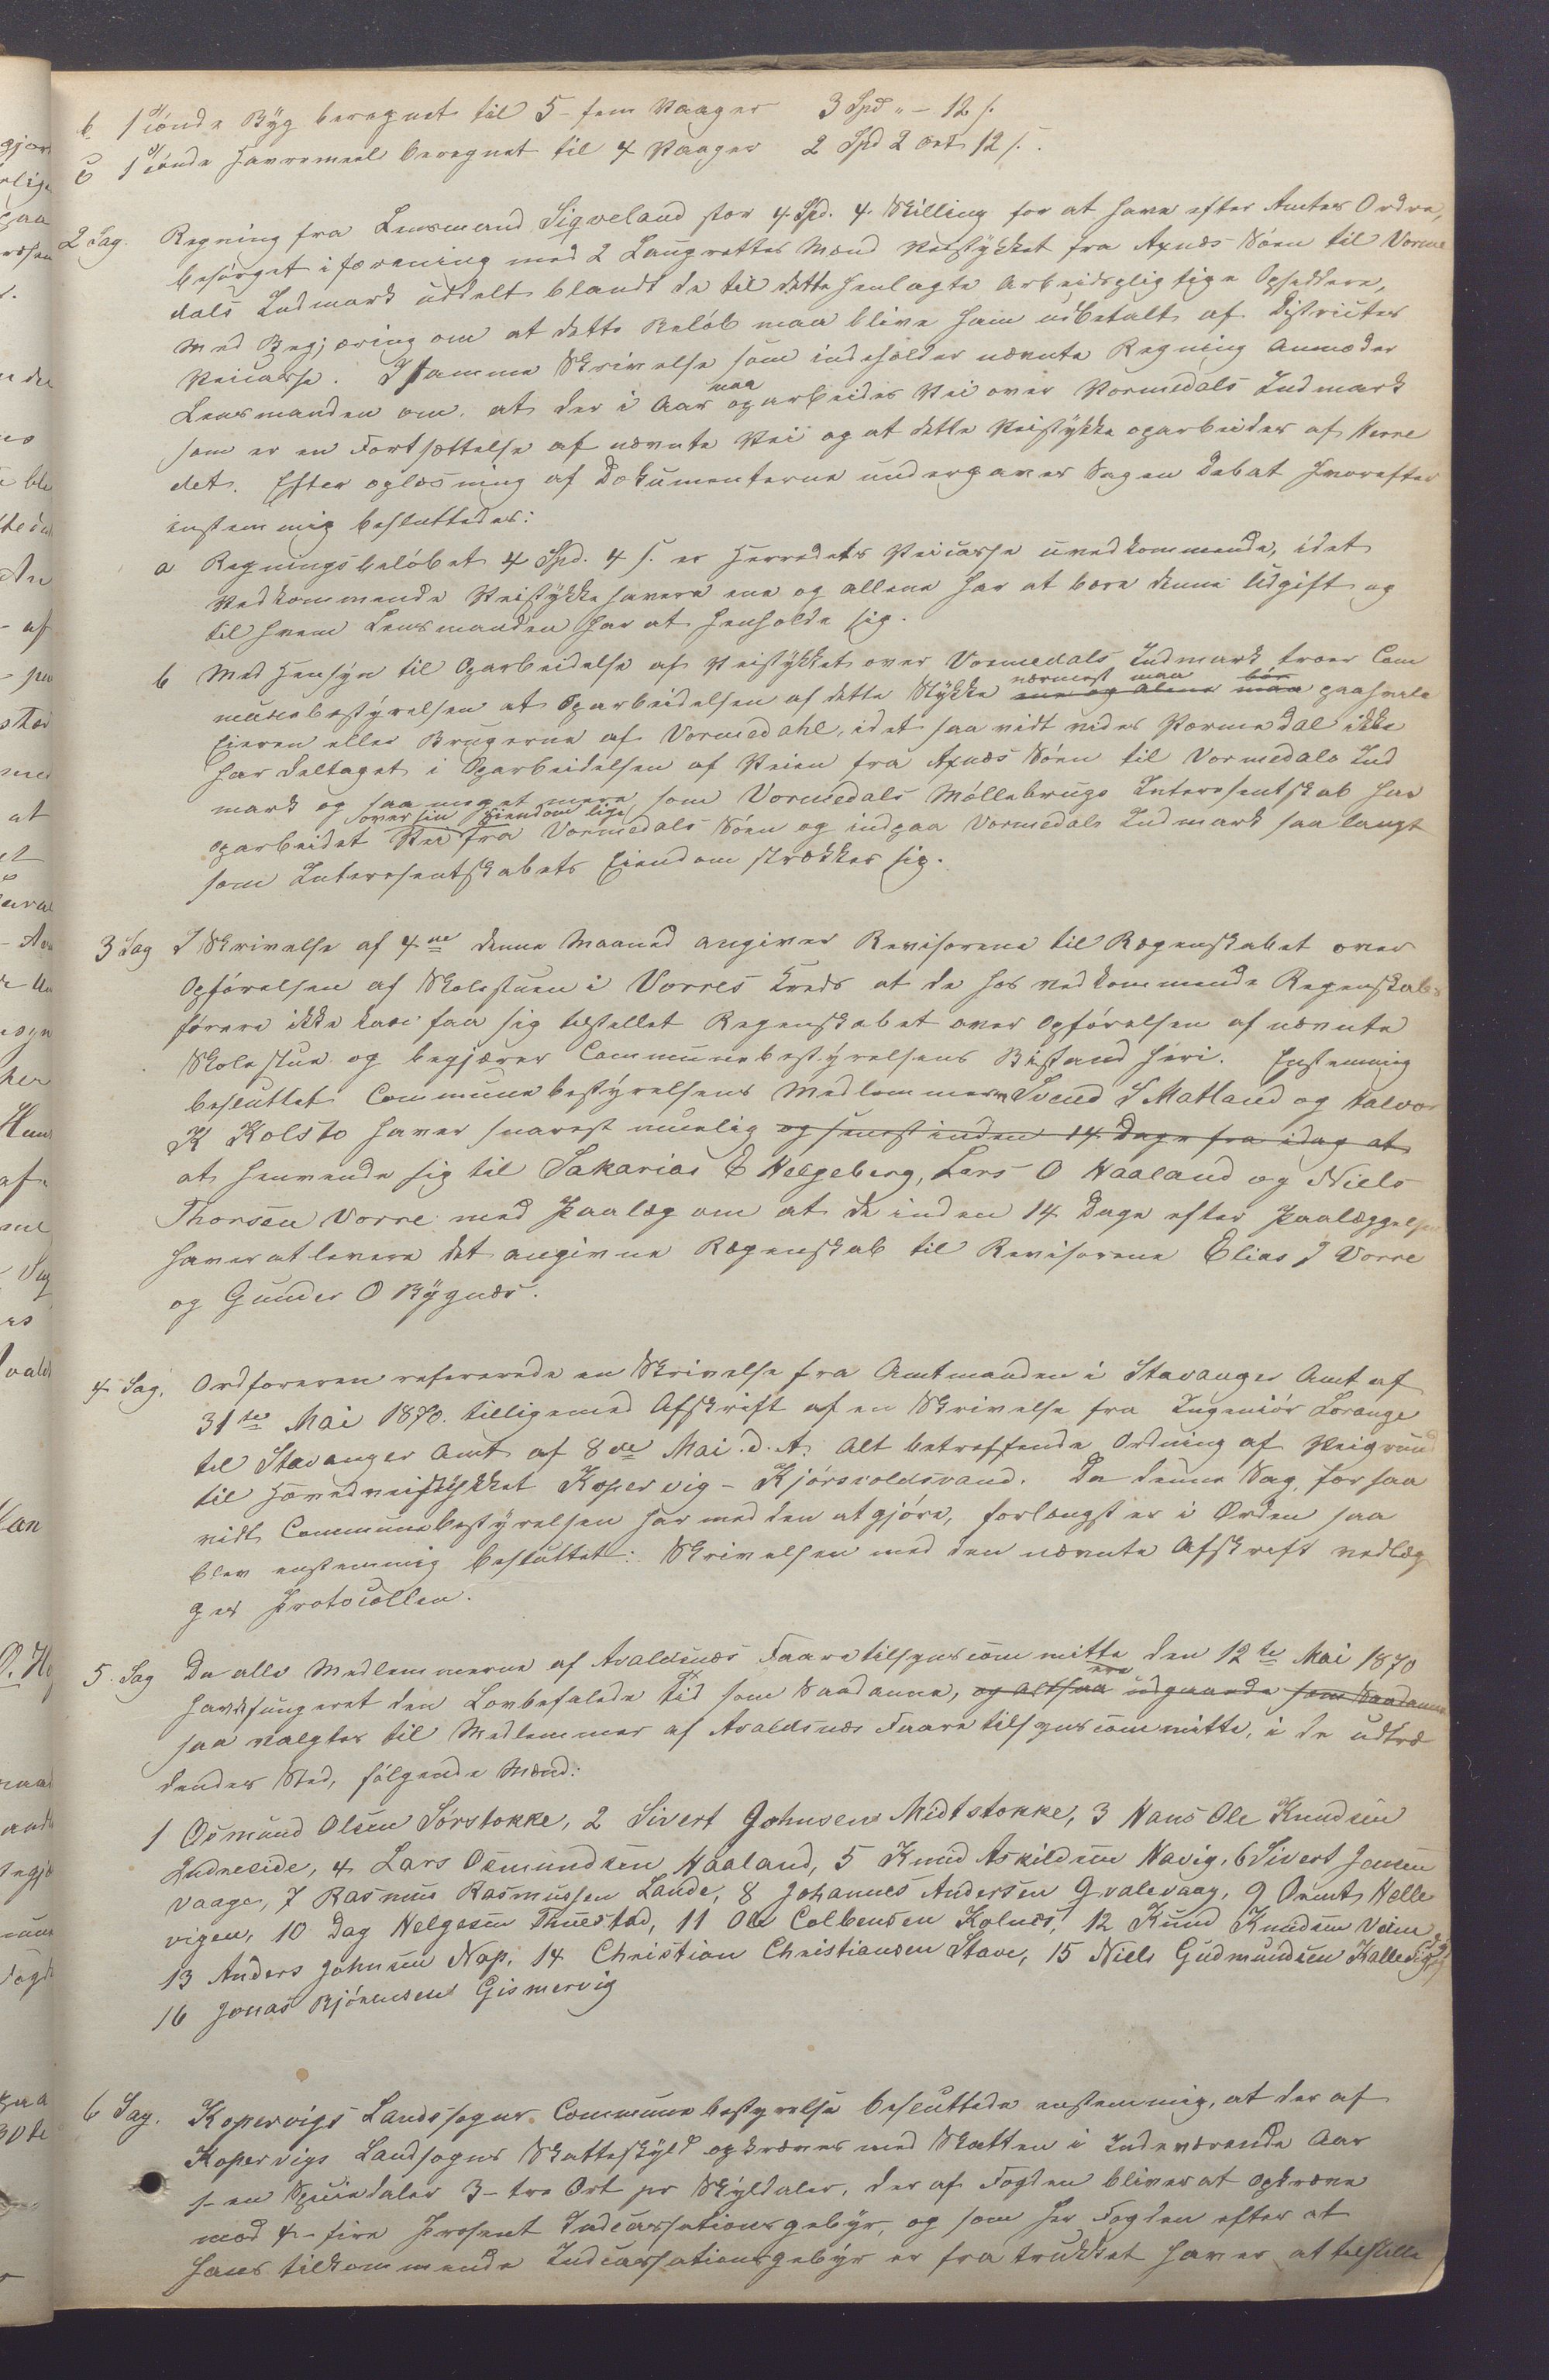 b 1 Tönde Byg beregnet til 5 - fem Vaager 3 Spd „ - 12 s.
c 1 Tönde Havremeel beregnet til 4 Vaager 2 Spd 2 ort 12 s.
2 Sag. Regning fra Lensmand Sigveland stor 4 Spd. 4 Skilling for at have efter Amtes Ordre,
besörget i forening med 2 Laugrettes Mænd Veistykket fra Axnæs Söen til Vorme
dals Indmark uddelt blandt de til dette henlagte Arbeidspligtige Opsiddere,
med Begjæring om at dette Belöb maa blive ham udbetalt af Districtes
Veicasse. I samme Skrivelse som indeholder nævnte Regning Anmoder
Lensmanden om, at der i Aar maa oparbeides Vei over Vormedals Indmark
som er en Fortsættelse af nævnte Vei og at dette Veistykke oparbeides af Herre
det. Efter oplæsning af Dokumenterne undergaves Sagen Debat hvorefter
enstemmig besluttedes:
a Regningsbelöbet 4 Spd. 4 s. er Herredets Veicasse uvedkommende, idet
Vedkommende Veistykkehavere ene og allene har at bære denne Udgift og
til hvem Lensmanden har at henholde sig.
b Med Hensyn til Oparbeidelse af Veistykket over Vormedals Indmark troer Com
munebestyrelsen at Oparbeidelsen af dette Stykke nærmest maa ene og Alene maa bör paahvile
Eieren eller Brugerne af Vormedahl, idet saa vidt vides Vormedal ikke
har deltaget i Oparbeidelsen af Veien fra Axnæs Söen til Vormedals Ind
mark og saa meget mere som Vormedals Möllebrugs Interesentskab har
oparbeidet Vei over sin Eiendom lige fra Vormedals Söen og indpaa Vormedals Indmark saa langt
som Interesentskabets Eiendom strækker sig.
3 Sag I Skrivelse af 4de denne Maaned angiver Revisorene til Regenskabet over
Opförelsen af Skolestuen i Vorres Kreds at de hos vedkommende Regenskabs
förere ikke kan faa sig tilstellet Regenskabet over Opförelsen af nævnte
Skolestue og begjærer Communebestyrelsens Bistand heri. Enstemmig
besluttet Communebestyrelsens Medlemmer Svend S Matland og Halvor
K Kolstö haver snarest muelig og senest inden 14 Dage fra idag at
at henvende sig til Sakarias E Helgeberg, Lars O Haaland og Niels
Thorsen Vorre med Paalæg om at de inden 14 Dage efter Paalæggelsen
haver at levere det angivne Regenskab til Revisorene Elias J Vorre
og Gunder O Bygnæs.
4 Sag. Ordföreren refererede en Skrivelse fra Amtmanden i Stavanger Amt af
31te Mai 1870 tilligemed Afskrift af en Skrivelse fra Ingeniör Lorange
til Stavanger Amt af 8de Mai d. A. Alt betreffende Ordning af Veigrund
til Hovedveistykket Kopervig - Kjörsvoldsvand. Da denne Sag, for saa
vidt Communebestyrelsen har med den at gjöre, forlængst er i Orden saa
blev enstemmig besluttet: Skrivelsen med den nævnte Afskrift vedlæg
ges Protocollen.
5. Sag Da alle Medlemmerne af Avaldsnæs Faaretilsynscommitte den 12te Mai 1870
have fungeret den Lovbefalede Tid som Saadanne, og altsaa ere udgaaende som Saadanne
saa valgtes til Medlemmer af Avaldsnæs Faaretilsynscommitte, i de udtræ
dendes Sted, fölgende Mænd:
1 Osmund Olsen Sörstokke, 2 Sivert Johnsen Midtstokke, 3 Hans Ole Knudsen
Indreeide, 4 Lars Osmundsen Haaland, 5 Knud Askildsen Havig, 6 Sivert Jensen
Vaage, 7 Rasmus Rasmussen Lande, 8 Johannes Andersen Qvalevaag, 9 Helle
vigen, 10 Dag Helgesen Thuestad, 11 Ole Colbensen Kolnes, 12 Knud Knudsen
13 Anders Johnsen Nap, 14 Christian Christiansen Stave, 15 Niels Gudmundsen Kallevig, og
16 Jonas Björnsen Gismervig
6 Sag. Kopervigs Landssogns Communebestyrelse besluttede enstemmig, at der af
Kopervigs Landsogns Skatteskyld opkræves med Skatten i Indeværende Aar
1 - en Speciedaler 3 - tre Ort pr Skylddaler, der af Fogden bliver at opkræve
mod 4 - fire Prosent Indcassationsgebyr, og som Hr Fogden efter at
hans tilkommende Indcassationsgebyr er fratrukket haver at tilstille